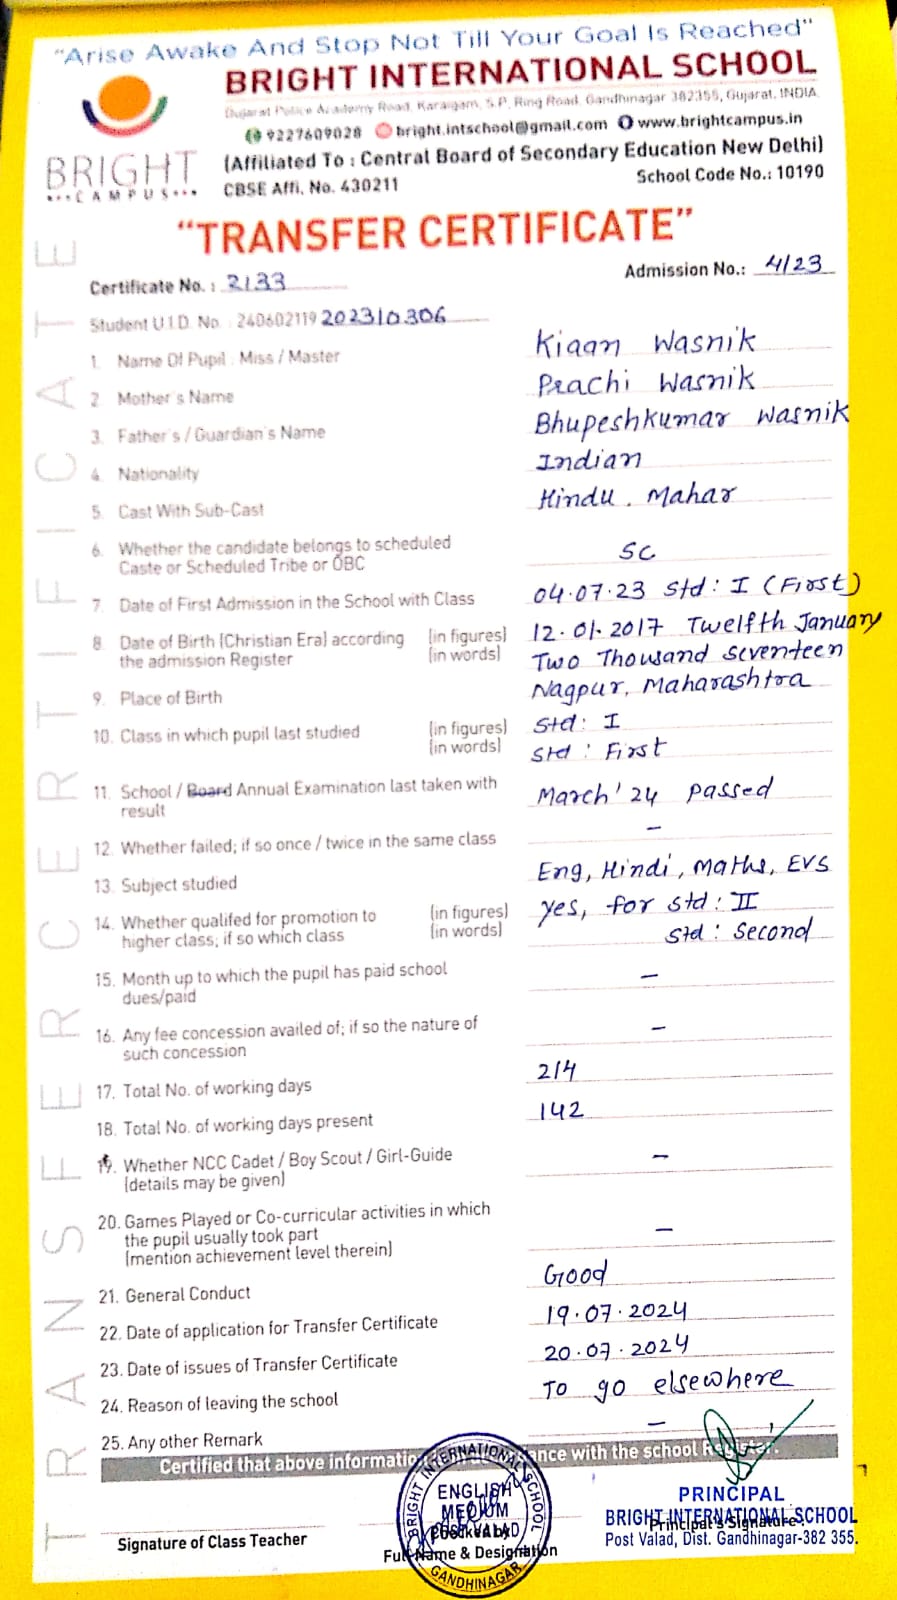 "Arise Awake And Stop Not Till Your Goal Is Reached"
BRIGHT INTERNATIONAL SCHOOL
Gujarat Police Academy Road, Karaigam, S.P. Ring Road, Gandhinagar 382355, Gujarat, INDIA.
9227609028 bright.intschool@gmail.com www.brightcampus.in
BRIGHT
...CAMPUS...
(Affiliated To : Central Board of Secondary Education New Delhi)
CBSE Affi. No. 430211 School Code No.: 10190
"TRANSFER CERTIFICATE"
TRANSFER CERTIFICATE
Certificate No. : 2133 Admission No.: 4/23
Student U.I.D. No. : 240602119 202310306
1. Name Of Pupil : Miss / Master Kiaan Wasnik
2. Mother's Name Prachi Wasnik
3. Father's / Guardian's Name Bhupeshkumar Wasnik
4. Nationality Indian
5. Cast With Sub-Cast Hindu. Mahar
6. Whether the candidate belongs to scheduled
Caste or Scheduled Tribe or OBC SC
7. Date of First Admission in the School with Class 04.07.23 Std: I (First)
8. Date of Birth (Christian Era) according (in figures) 12.01.2017 Twelfth January
the admission Register (in words) Two Thousand Seventeen
9. Place of Birth Nagpur, Maharashtra
10. Class in which pupil last studied (in figures) Std: I
(in words) Std: First
11. School / Board Annual Examination last taken with
result March'24 Passed
12. Whether failed; if so once / twice in the same class –
13. Subject studied Eng, Hindi, Maths, EVS
14. Whether qualifed for promotion to (in figures) Yes, for Std: II
higher class; if so which class (in words) Std: Second
15. Month up to which the pupil has paid school
dues/paid –
16. Any fee concession availed of; if so the nature of
such concession –
17. Total No. of working days 214
18. Total No. of working days present 142
19. Whether NCC Cadet / Boy Scout / Girl-Guide
(details may be given) –
20. Games Played or Co-curricular activities in which
the pupil usually took part
(mention achievement level therein) –
21. General Conduct Good
22. Date of application for Transfer Certificate 19.07.2024
23. Date of issues of Transfer Certificate 20.07.2024
24. Reason of leaving the school To go elsewhere
25. Any other Remark –
Certified that above with the school
BRIGHT INTERNATIONAL SCHOOL
ENGLISH
MEDIUM
VALAD
GANDHINAGAR
Signature of Class Teacher
Checked by
Full Name & Designation
PRINCIPAL
BRIGHT INTERNATIONAL SCHOOL
Principal's Signature
Post Valad, Dist. Gandhinagar-382 355.